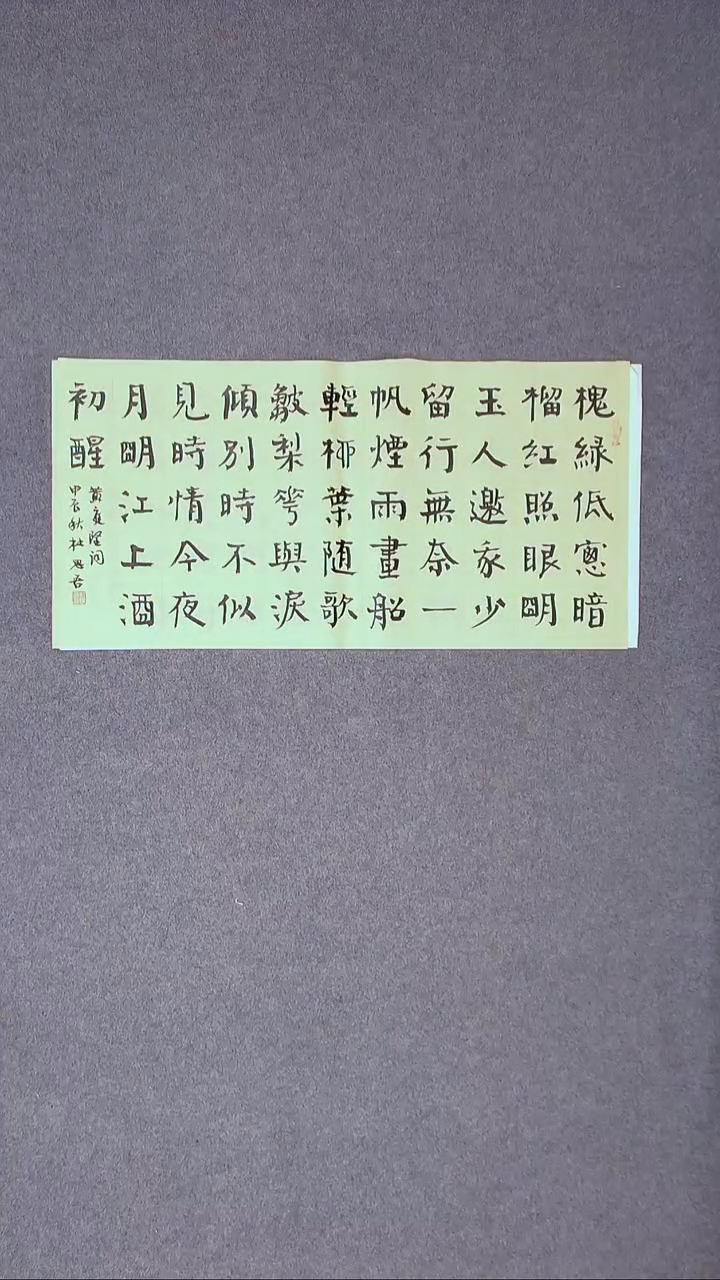 槐綠低窻暗
榴紅照眼明
玉人邀我少
留行無奈一
帆煙雨畫船
輕柳葉随歌
皺梨花與淚
傾別時不似
見時情今夜
月明江上酒
初醒
黃庭堅詞
甲辰秋杜